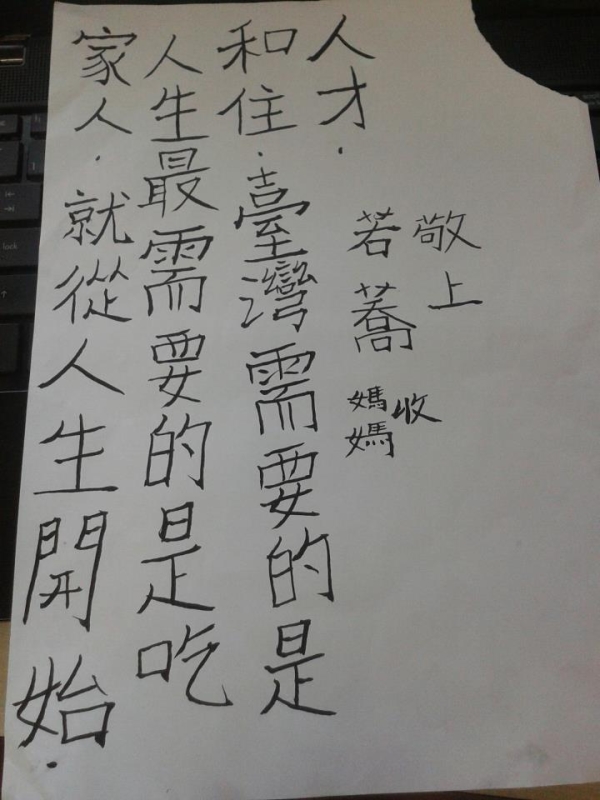 家人.就從人生開始.
人生最需要的是吃
和住.臺灣需要的是
人才.
若蕎
敬上
媽媽
收